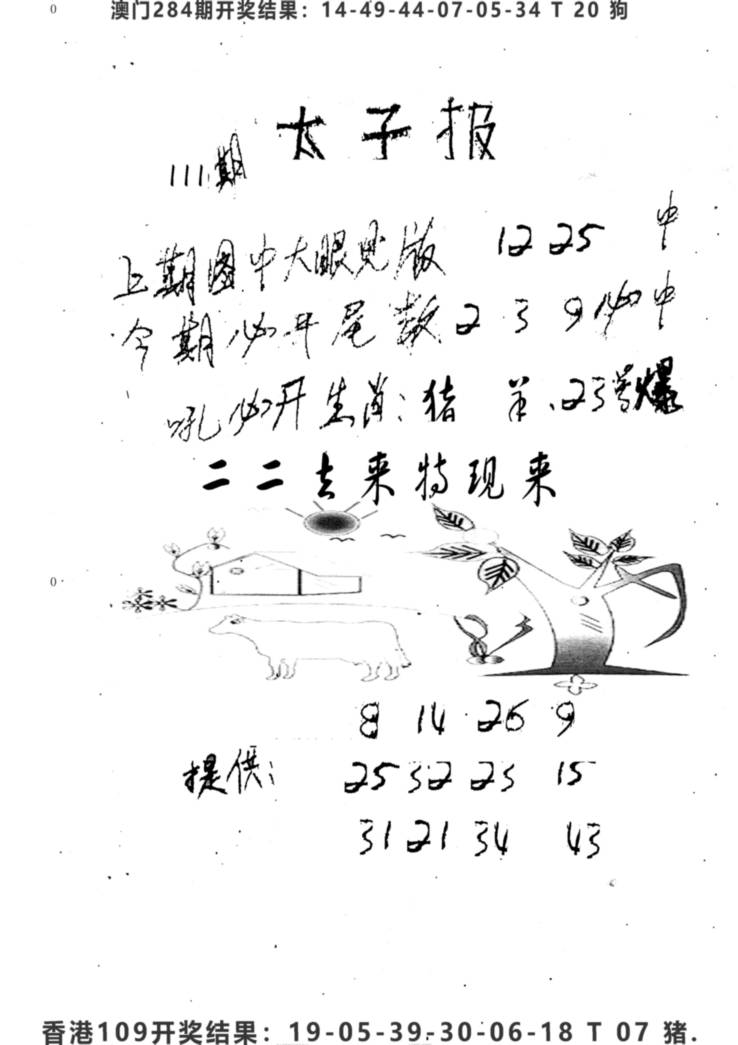 澳门284期开奖结果：14-49-44-07-05-34 T 20 狗
太子报
111期
上期图中大眼见版 12 25 中
今期必开尾数 2 3 9必中
吼必开生肖：猪 羊、23号爆
二二去来特现来
8 14 26 9
提供：
25 32 23 15
31 21 34 43
香港109开奖结果：19-05-39-30-06-18 T 07 猪.